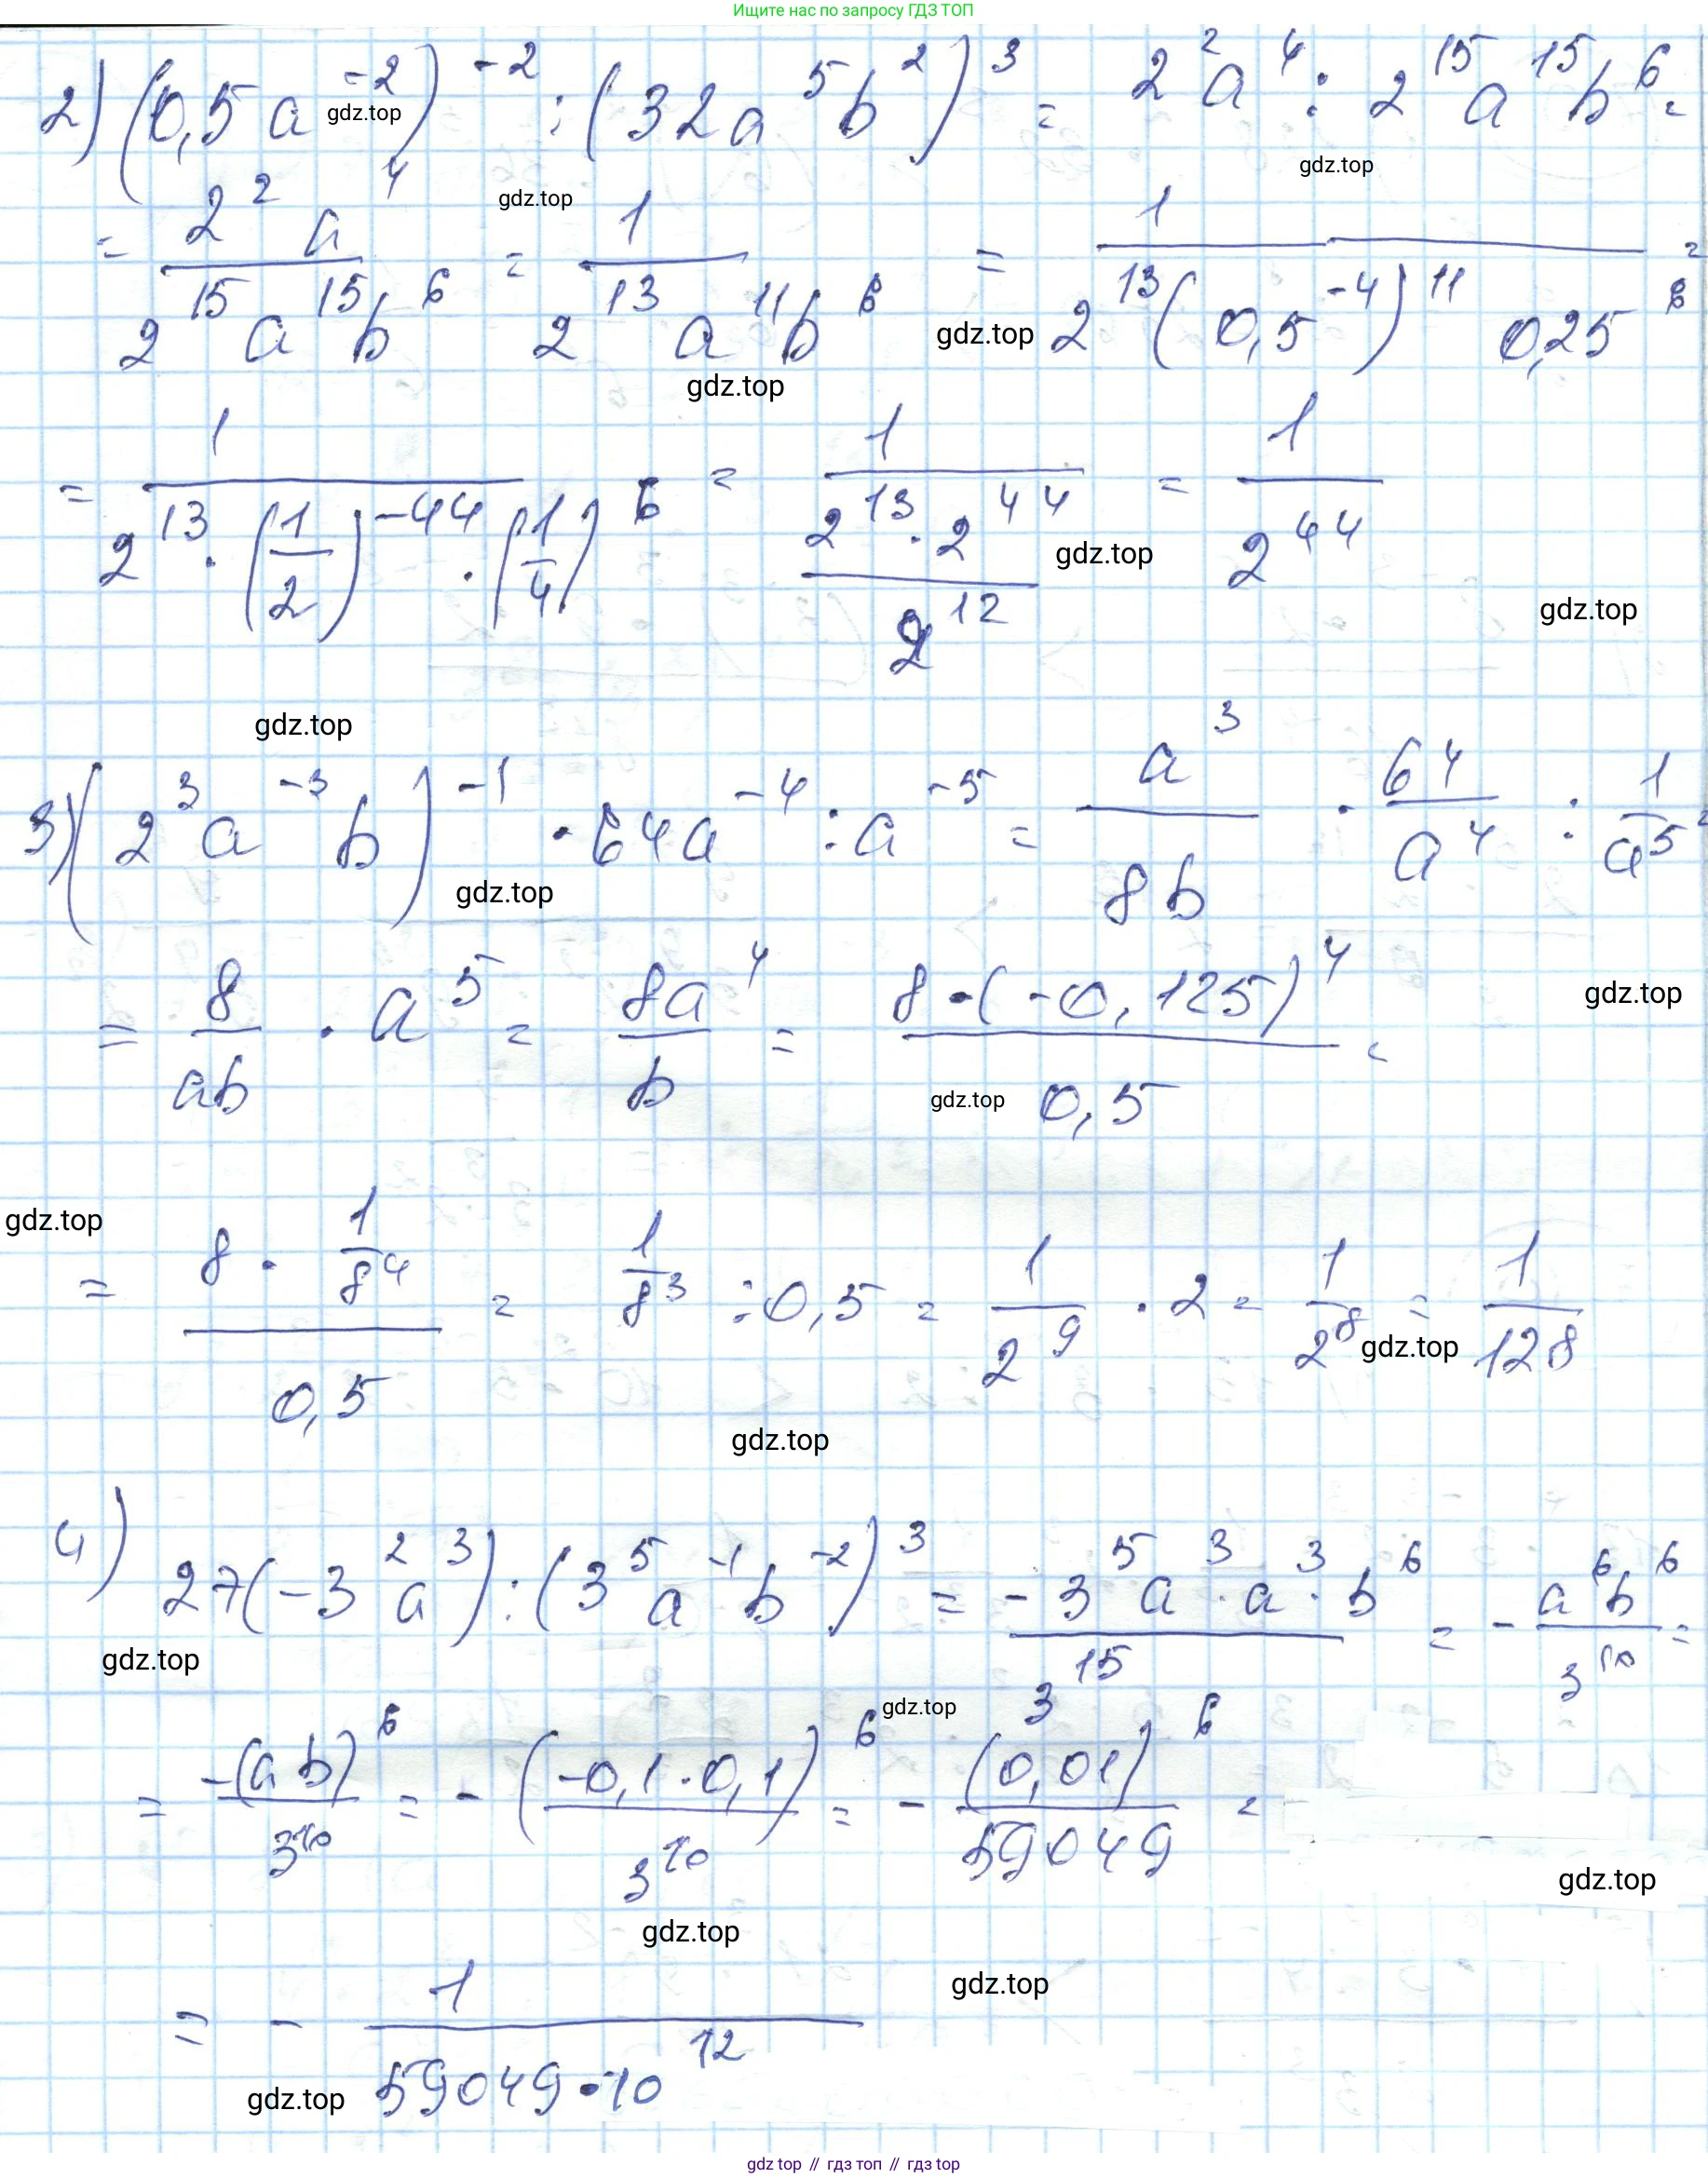 Ищите нас по запросу ГДЗ ТОП
2) (0,5a^-2)^-2 : (32a^5b^2)^3 = 2^2a^4 : 2^15a^15b^6 =
gdz.top
gdz.top
gdz.top
= 2^2a^4/(2^15a^15b^6) = 1/(2^13a^11b^6) = 1/(2^13(0,5^-4)^11 0,25^6) =
gdz.top
gdz.top
= 1/(2^13 · (1/2)^-44 · (1/4)^6) = 1/((2^13 · 2^44)/2^12) = 1/2^44
gdz.top
gdz.top
gdz.top
3) (2^3a^-3b)^-1 · 64a^-4 : a^-5 = a^3/(8b) · 64/a^4 : 1/a^5 =
gdz.top
= 8/(ab) · a^5 = 8a^4/b = (8·(-0,125)^4)/0,5 =
gdz.top
gdz.top
gdz.top
= (8 · 1/8^4)/0,5 = 1/8^3 : 0,5 = 1/2^9 · 2 = 1/2^8 = 1/128
gdz.top
gdz.top
4) 27(-3^2a^3) : (3^5a^-1b^-2)^3 = (-3^5a^3 · a^3 · b^6)/3^15 = - a^6b^6/3^10 =
gdz.top
gdz.top
= -(ab)^6/3^10 = - (-0,1·0,1)^6/3^10 = - (0,01)^6/59049 =
gdz.top
gdz.top
gdz.top
= - 1/(59049·10^12)
gdz.top
gdz top // гдз топ // gdz top